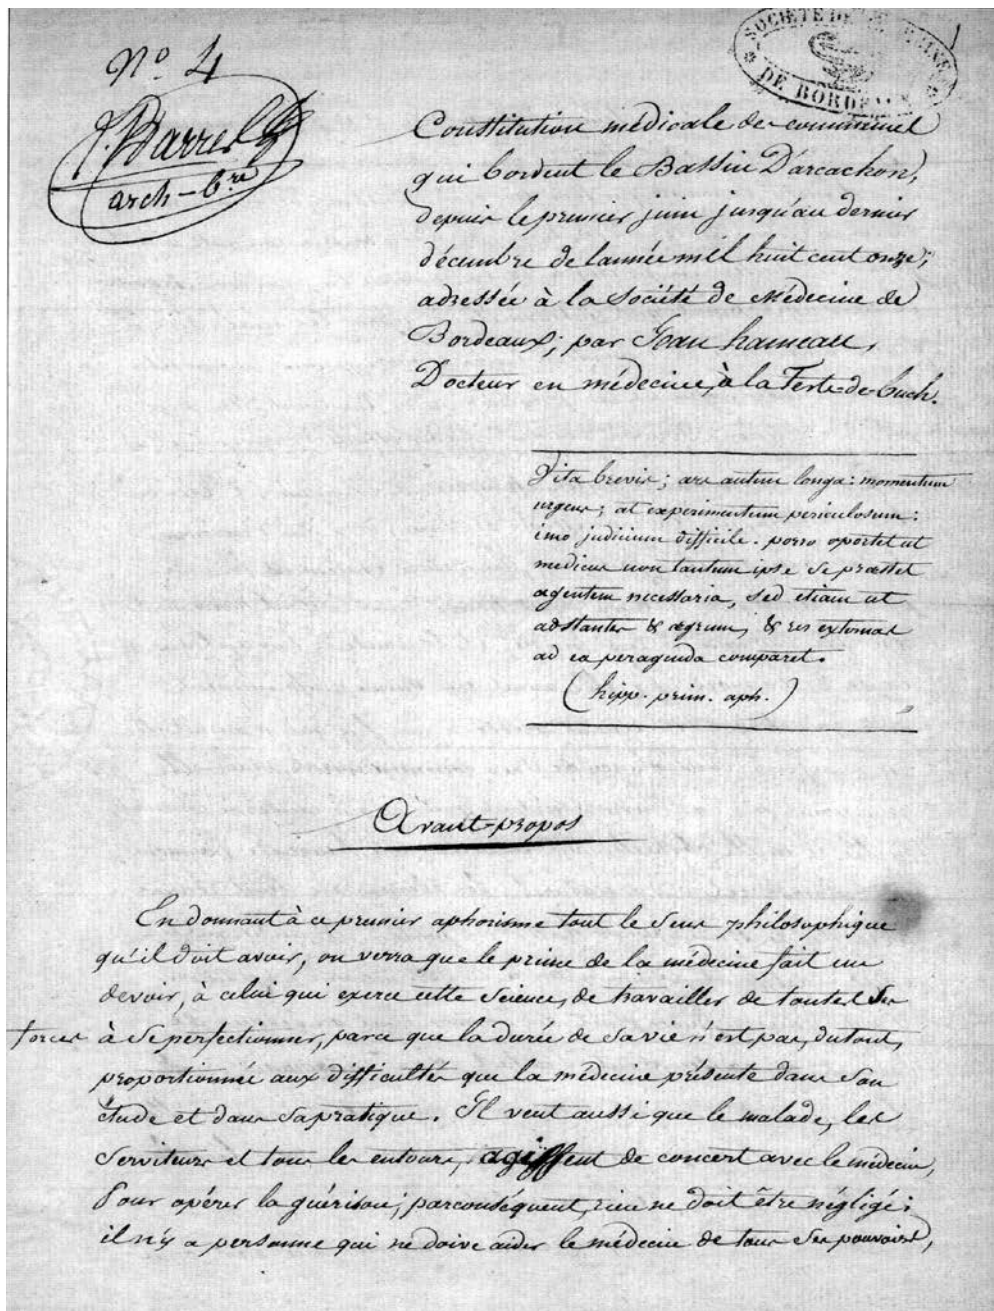 N.o 4
arch-bre
SOCIÉTÉ DE MÉDECINE
DE BORDEAUX
Constitution médicale des communes
qui bordent le Bassin D'arcachon,
depuis le premier juin jusqu'au dernier
décembre de l'année mil huit cent onze;
adressée à la Société de Médecine de
Bordeaux; par Jean hameau,
Docteur en médecine, à la Teste-de-buch.
Vita brevis; ars autem longa: momentum
urgens; at experimentum periculosum:
imo judicium difficile. porro oportet ut
medicus non tantum ipse se præstet
agentem necessaria, sed etiam ut
adstantes & ægrum, & res externas
ad ea peragenda comparet.
(hipp. prim. aph.)
Avant-propos
En donnant à ce premier aphorisme tout le sens philosophique
qu'il doit avoir, on verra que le prince de la médecine fait un
devoir, à celui qui exerce cette science, de travailler de toutes ses
forces à se perfectionner, parce que la durée de sa vie n'est pas, du tout,
proportionnée aux difficultés que la médecine présente dans son
étude et dans sa pratique. Il veut aussi que le malade, les
serviteurs et tous les entours, agissent de concert avec le médecin,
Pour opérer la guérison; parconséquent, rien ne doit être négligé;
il n'y a personne qui ne doive aider le médecin de tous ses pouvoirs,